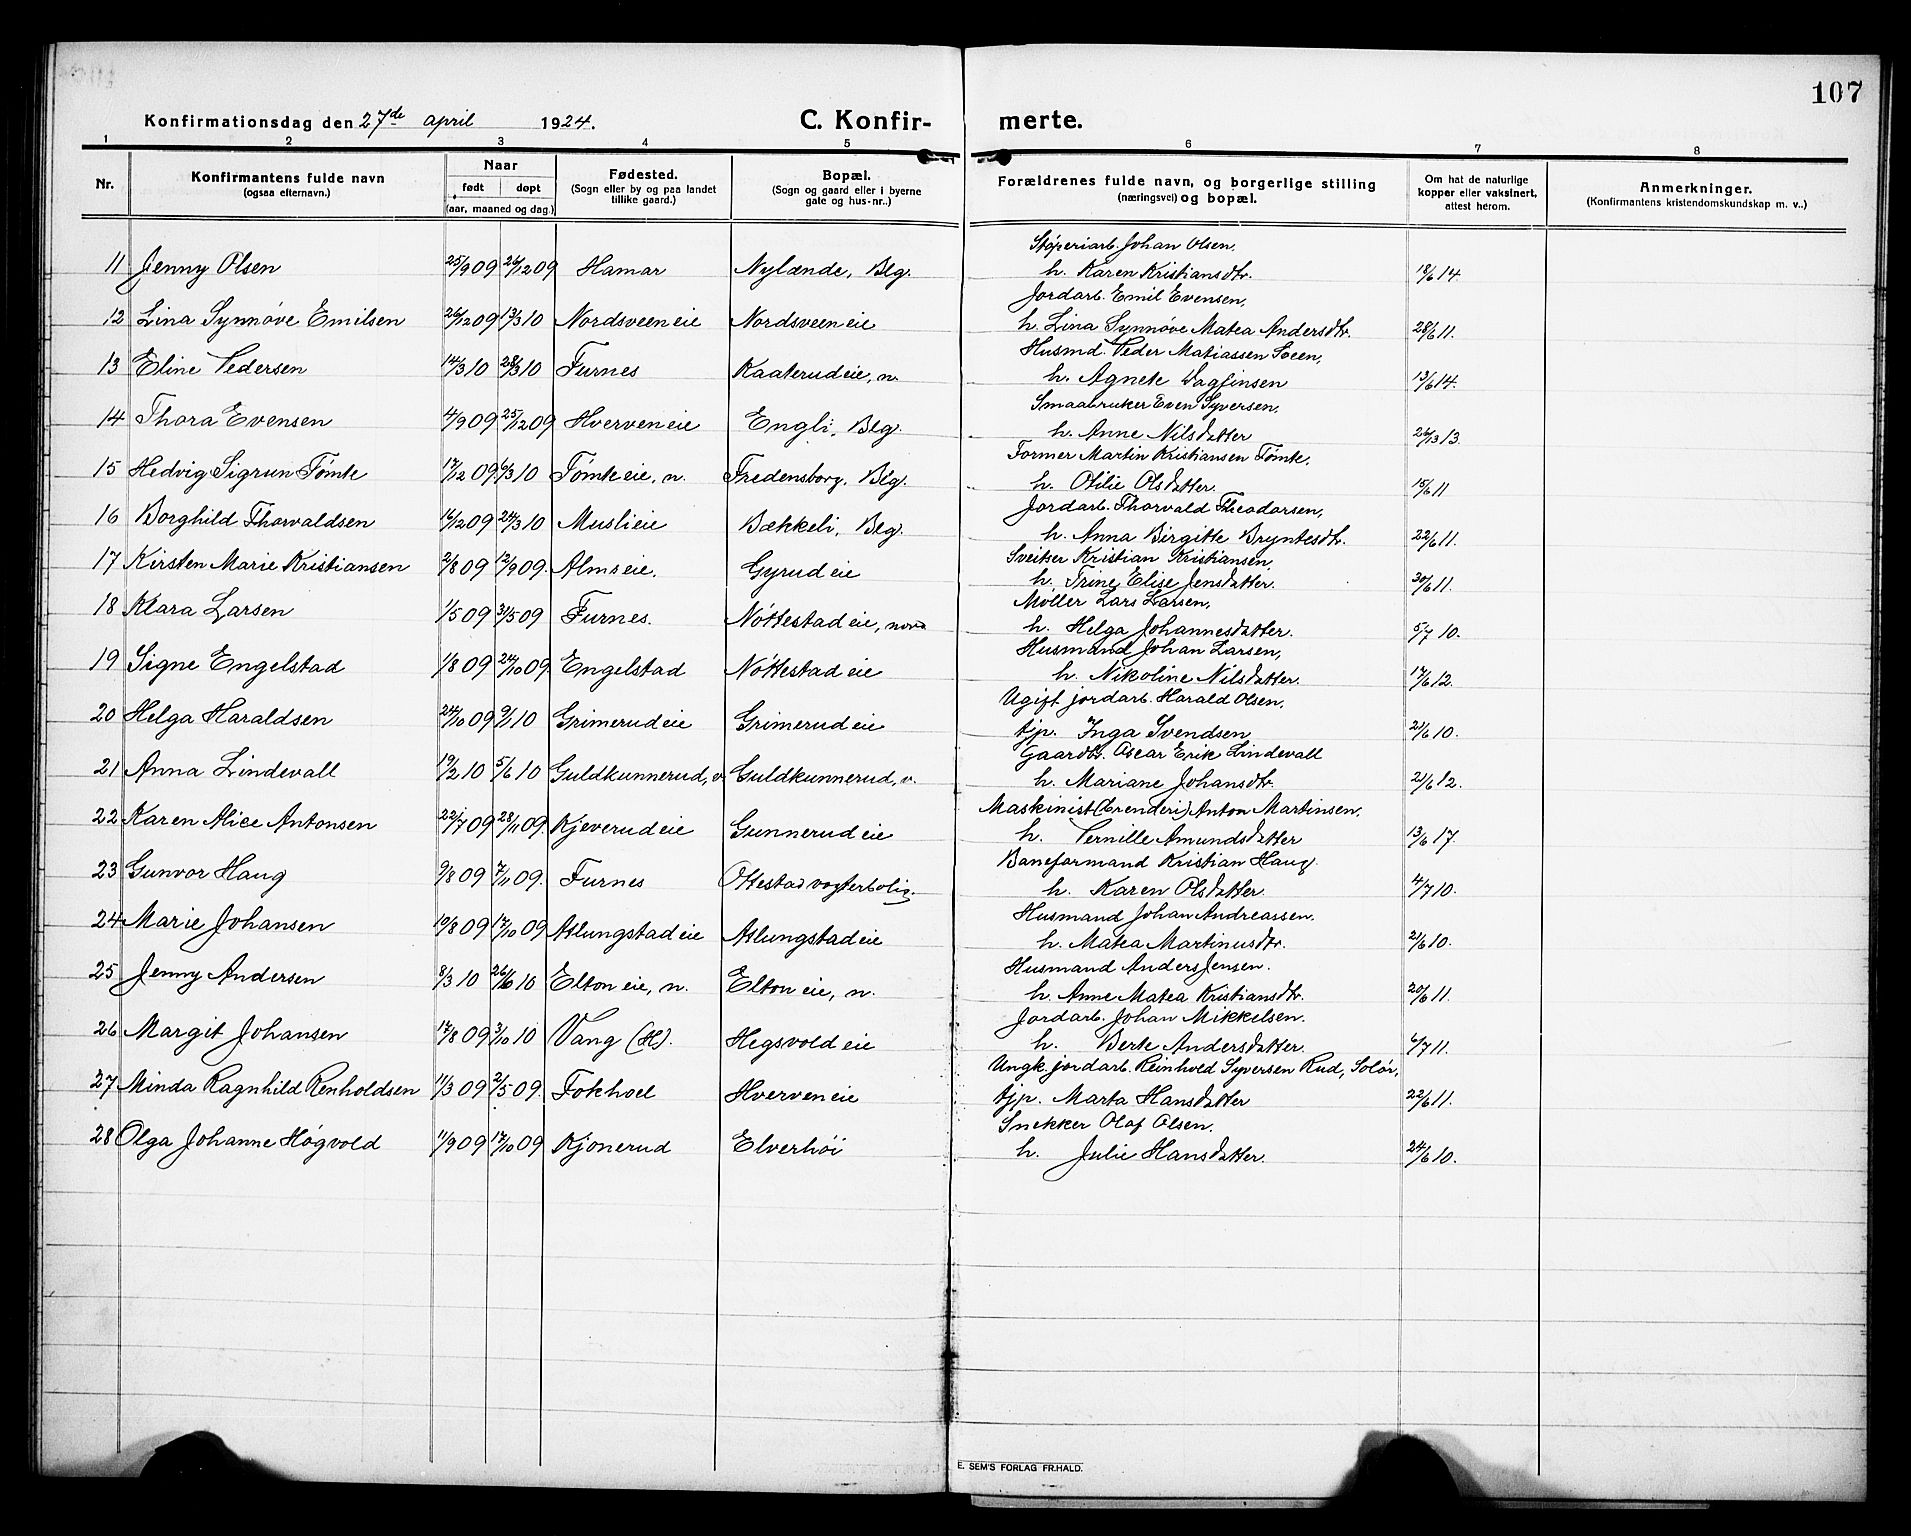 107
Konfirmationsdag den 27de april 1924. C. Konfir- merte.
1 2 3 4 5 6 7 8
Nr. Konfirmantens fulde navn (ogsaa efternavn.) Naar født døpt (aar, maaned og dag.) Fødested. (Sogn eller by og paa landet tillike gaard.) Bopæl. (Sogn og gaard eller i byerne gate og hus-nr..) Forældrenes fulde navn, og borgerlige stilling (næringsvei) og bopæl. Om hat de naturlige kopper eller vaksinert, attest herom. Anmerkninger. (Konfirmantens kristendomskundskap m. v..)
Støperiarb. Johan Olsen,
11 Jenny Olsen 25/9 09 26/12 09 Hamar Nylænde, Blg. h. Karen Kristiansdtr. 18/6 14.
Jordarb. Emil Evensen,
12 Lina Synnøve Emilsen 26/12 09 13/3 10 Nordsveen eie Nordsveen eie h. Lina Synnøve Matea Andersdtr. 28/6 11.
Husmd. Peder Matiassen Sveen,
13 Eline Pedersen 14/3 10 28/3 10 Furnes Kaaterud eie, n. h. Agnete Dagfinsen 13/6 14.
Smaabruker Even Syversen,
14 Thora Evensen 4/9 09 25/12 09 Hverven eie Engli, Blg. h. Anne Nilsdatter 26/13 13.
Former Martin Kristiansen Tømte,
15 Hedvig Sigrun Tømte 17/12 09 6/3 10 Tømte eie, n. Fredensborg, Blg. h. Otilie Olsdatter. 15/6 11
Jordarb. Thorvald Theodorsen,
16 Borghild Thorvaldsen 16/12 09 24/3 10 Musli eie Bækkeli, Blg. h. Anna Birgitte Bryntesdtr. 22/6 11.
Sveitser Kristian Kristiansen,
17 Kirsten Marie Kristiansen 2/8 09 12/9 09. Alms eie. Gyrud eie h. Trine Elise Jensdatter. 30/6 11.
Møller Lars Larsen,
18 Klara Larsen 1/5 09 31/5 09 Furnes. Nøttestad eie, nord h. Helga Johannesdatter. 5/7 10.
Husmand Johan Larsen,
19 Signe Engelstad 1/8 09 24/10 09 Engelstad Nøttestad eie h. Nikoline Nilsdatter. 17/6 12.
Ugift jordarb. Harald Olsen,
20 Helga Haraldsen 24/10 09 9/1 10 Grimerud eie Grimerud eie tjp. Inga Svendsen 21/6 10.
Gaardbr. Oscar Erik Lindevall
21 Anna Lindevall 19/2 10 5/6 10 Guldkunnerud, v. Guldkunnerud, v. h. Mariane Johansdtr. 21/6 12.
Maskinist (brenderi) Anton Martinsen,
22 Karen Alice Antonsen 22/7 09 28/11 09. Kjeverud eie Gunnerud eie h. Pernille Amundsdatter 13/6 17.
Baneformand Kristian Haug.
23 Gunvor Haug 9/8 09 7/11 09. Furnes Ottestad vogterbolig. h. Karen Olsdatter. 4/7 10.
Husmand Johan Andreassen.
24 Marie Johansen 19/8 09 17/10 09 Aslungstad eie Aslungstad eie h. Matea Martinusdtr. 21/6 10.
Husmand Anders Jensen.
25 Jenny Andersen 8/3 10 26/6 10 Elton eie, n. Elton eie, n. h. Anne Matea Kristiansdtr. 20/6 11.
Jordarb. Johan Mikkelsen.
26 Margit Johansen 17/8 09 3/10 10 Vang (H). Hegsvold eie h. Berte Andersdatter. 6/7 11.
Ungk. jordarb. Reinhold Syversen Rud, Solør,
27 Minda Ragnhild Renholdsen 11/3 09 2/5 09. Fokhoel Hverven eie tjp. Marta Hansdatter 22/6 11.
Snekker Olaf Olsen.
28 Olga Johanne Høgvold 11/9 09 17/10 09 Kjonerud Elverhöi h. Julie Hansdatter. 24/6 10.
E. SEM'S FORLAG FR.HALD.